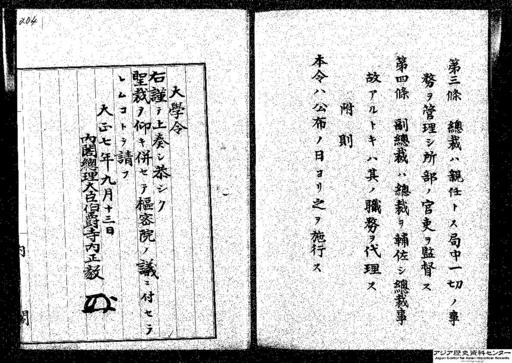 第三條 總裁ハ親任トス局中一切ノ事
務ヲ管理シ所部ノ官吏ヲ監督ス
第四條 副總裁ハ總裁ヲ輔佐シ總裁事
故アルトキハ其ノ職務ヲ代理ス
附則
本令ハ公布ノ日ヨリ之ヲ施行ス
204
大學令
右謹テ上奏シ恭シク
聖裁ヲ仰キ併セテ樞密院ノ議ニ付セラ
レムコトヲ請フ
大正七年九月十三日
內閣總理大臣伯爵寺內正毅
內 閣
アジア歴史資料センター
Japan Center for Asian Historical Records